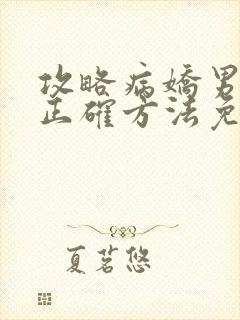 攻略病嬌男
正確方法免
夏茗悠